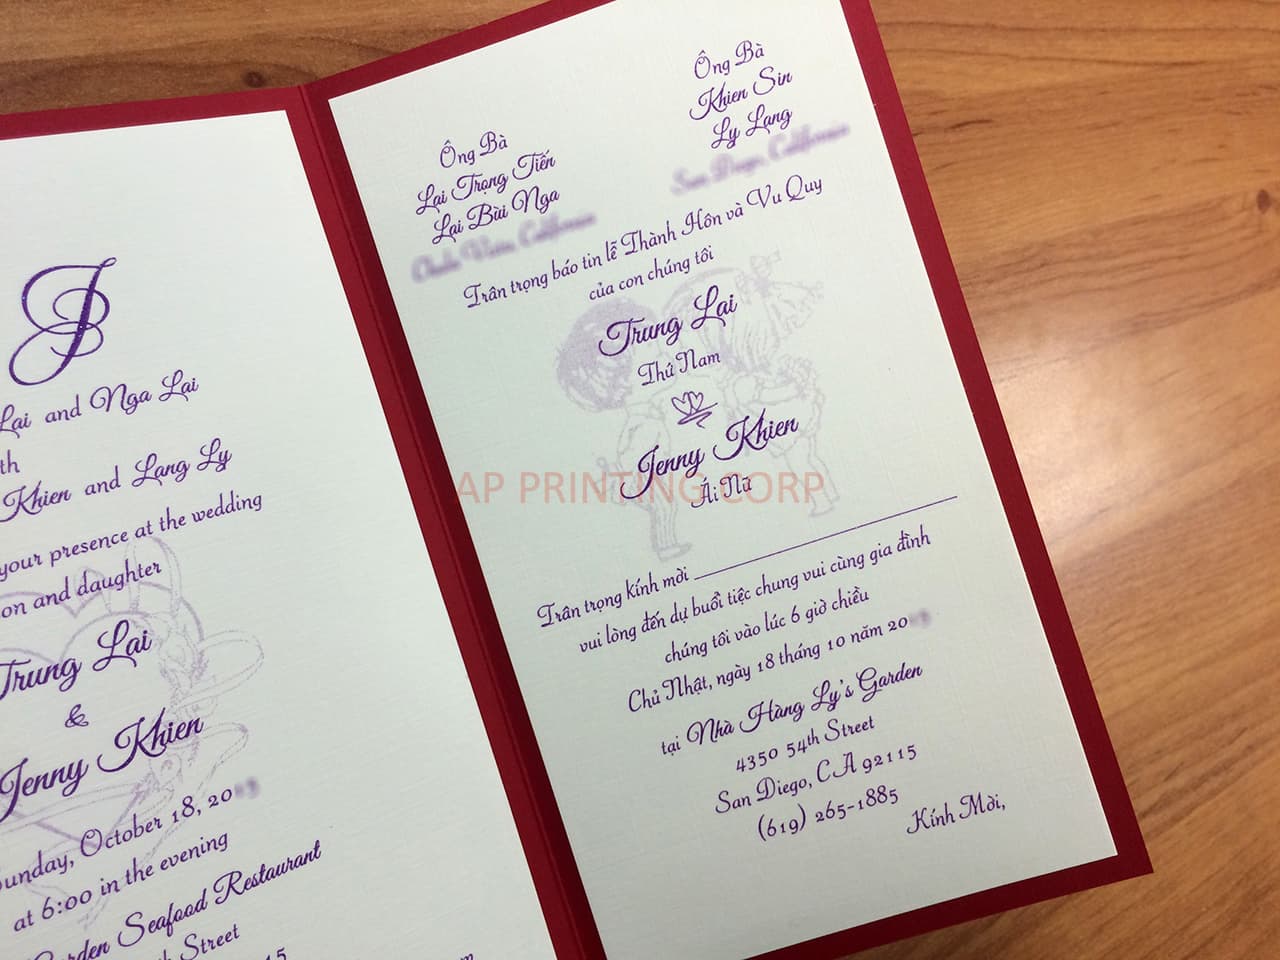 J
Lai and Nga Lai
th
Khien and Lang Ly
your presence at the wedding
on and daughter
Trung Lai
&
Jenny Khien
Sunday, October 18, 20
at 6:00 in the evening
Garden Seafood Restaurant
Street
15
Ông Bà
Lại Trọng Tiến
Lại Bùi Nga
Ông Bà
Khien Sin
Ly Lạng
San Diego, California
Trân trọng báo tin lễ Thành Hôn và Vu Quy
của con chúng tôi
Trung Lại
Thứ Nam
Jenny Khien
Ái Nữ
AP PRINTING CORP
Trân trọng kính mời
vui lòng đến dự buổi tiệc chung vui cùng gia đình
chúng tôi vào lúc 6 giờ chiều
Chủ Nhật, ngày 18 tháng 10 năm 20
tại Nhà Hàng Ly's Garden
4350 54th Street
San Diego, CA 92115
(619) 265-1885
Kính Mời,